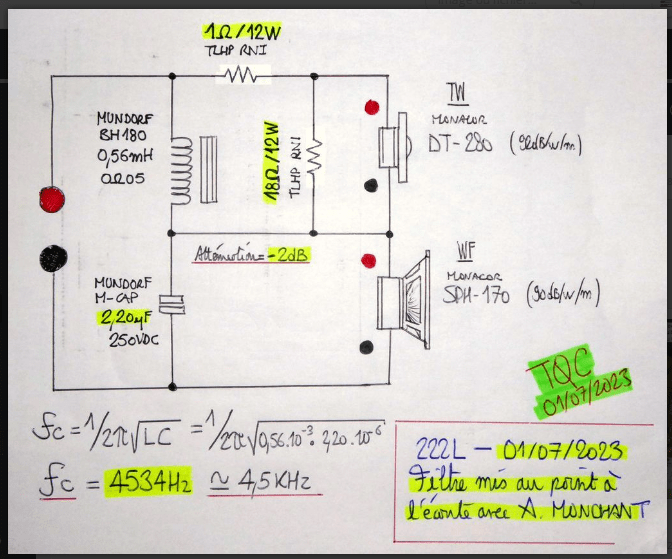 1Ω/12W
TLHP RNI
MUNDORF
BH180
0,56mH
0Ω05
18Ω/12W
TLHP RNI
TW
MONACOR
DT-280 (92dB/w/m)
Atténuation = -2dB
WF
MONACOR
SPH-170 (90dB/w/m)
MUNDORF
M-CAP
2,20µF
250VDC
TQC
01/07/2023
fc = 1/2π√LC = 1/2π√0,56.10⁻³ . 2,20.10⁻⁶
fc = 4534Hz ≃ 4,5KHz
222L – 01/07/2023
Filtre mis au point à
l'écoute avec A. MONCHANT